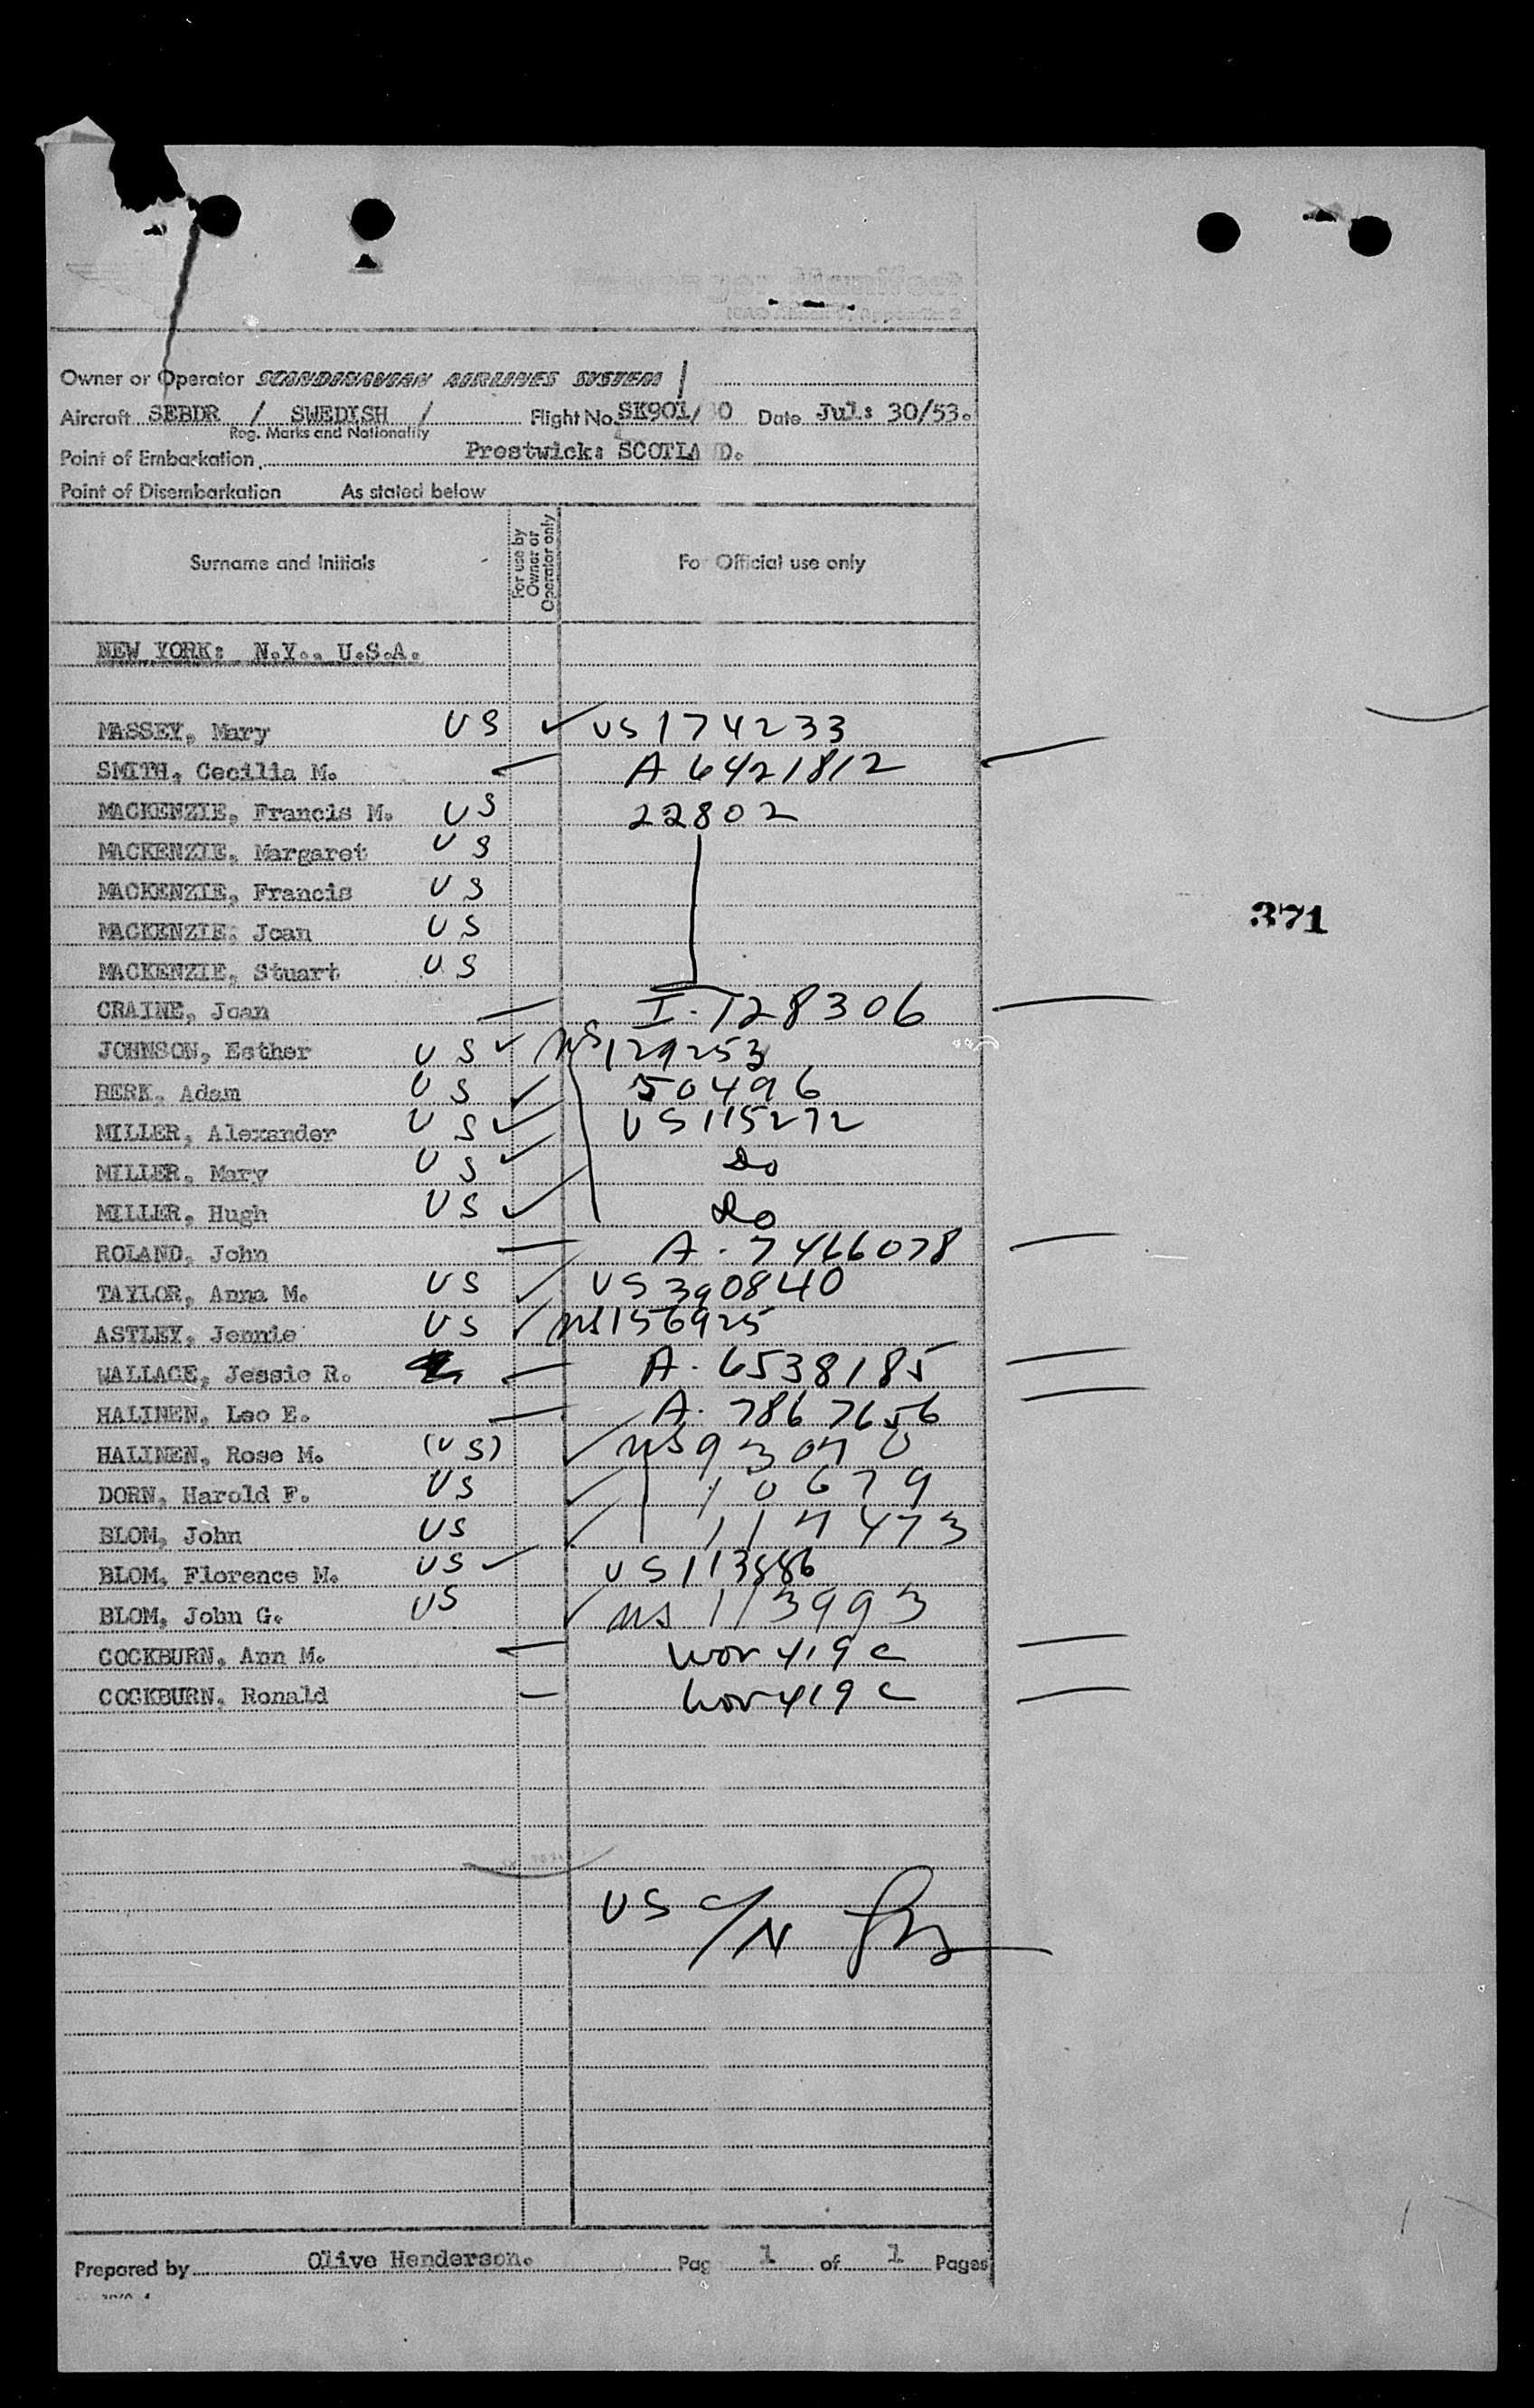 Owner or Operator SCANDINAVIAN AIRLINES SYSTEM /
Aircraft SEBDR / SWEDISH / Flight No. SK901/ 30 Date Jul: 30/53.
Reg. Marks and Nationality
Point of Embarkation Prestwick: SCOTLA D.
Point of Disembarkation As stated below
Surname and Initials For use by Owner or Operator only Fo Official use only
NEW YORK: N.Y., U.S.A.
MASSEY, Mary US ✓ US 174233
SMITH, Cecilia M. — A 6421812
MACKENZIE, Francis M. US 22802
MACKENZIE, Margaret US
MACKENZIE, Francis US
MACKENZIE, Joan US
371
MACKENZIE, Stuart US
CRAINE, Joan — I-128306
JOHNSON, Esther US ✓ NS 129253
BERK, Adam US ✓ 50496
MILLER, Alexander US ✓ US 115272
MILLER, Mary US ✓ Do
MILLER, Hugh US ✓ Do
ROLAND, John — A-7466078
TAYLOR, Anna M. US ✓ US 390840
ASTLEY, Jennie US ✓ NS 156925
WALLACE, Jessie R. — A-6538185
HALINEN, Leo E. — A-7867656
HALINEN, Rose M. (US) ✓ NS
DORN, Harold F. US ✓ 10679
BLOM, John US ✓ 117473
BLOM, Florence M. US ✓ US 113886
BLOM, John G. US ✓ NS 113993
COCKBURN, Ann M. — 419 C
COCKBURN, Ronald — 419 C
US C/N
Prepared by Olive Henderson. Pag 1 of 1 Pages